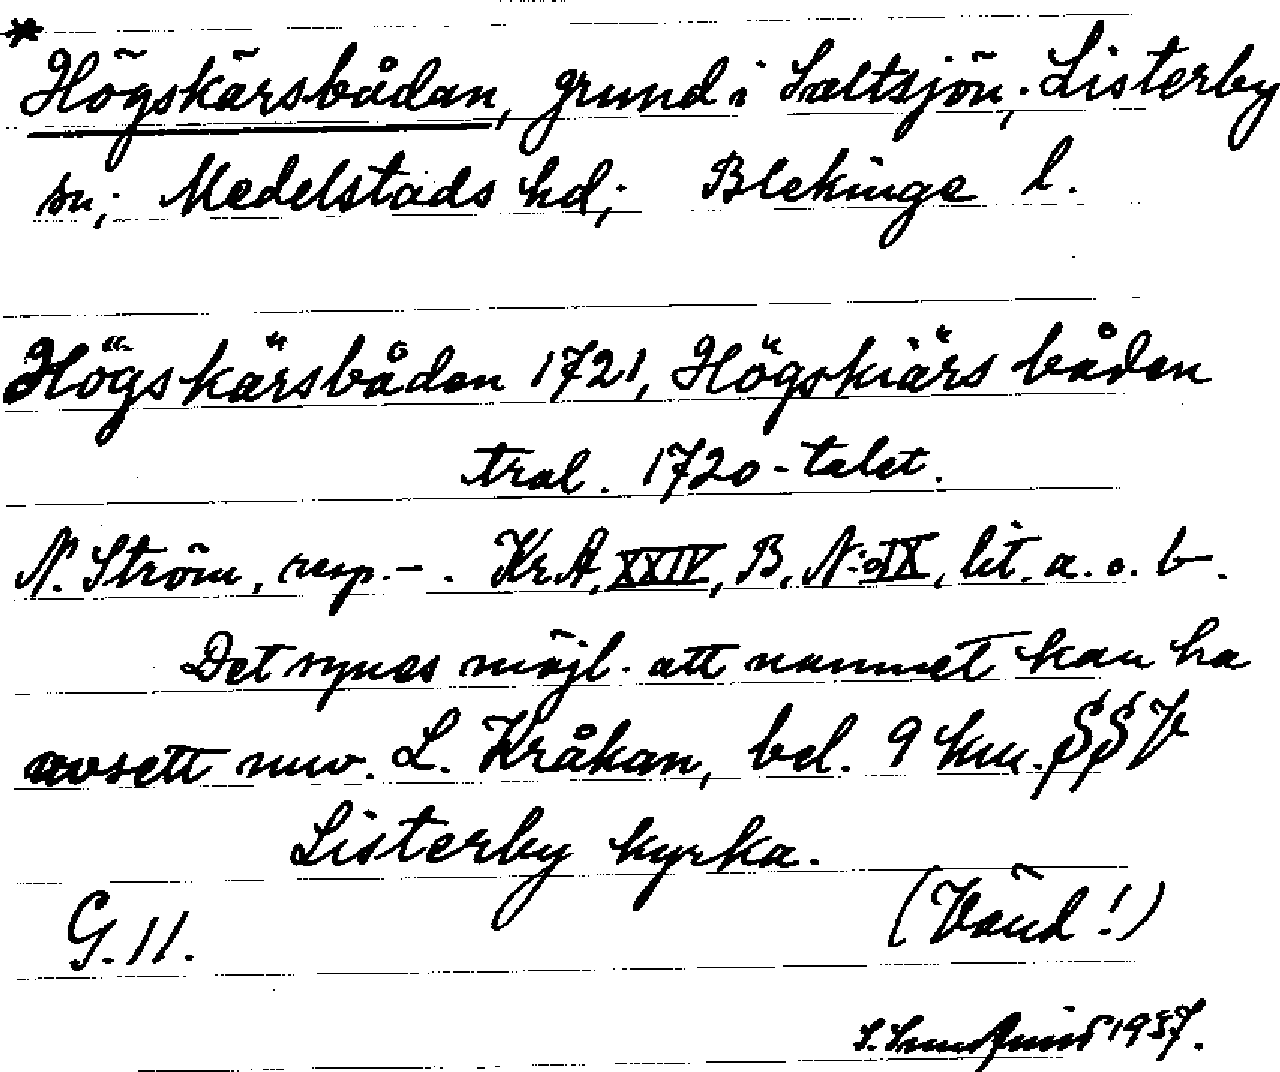 * Högskärsbådan, grund i Saltsjön; Listerby
sn; Medelstads hd; Blekinge l.
Högskärsbåden 1721, Högskiärs båden
tral. 1720-talet.
N. Ström, resp. - . Kr.A. XXIV, B, N:o IX, lit. a. o. b.
Det synes möjl. att namnet kan ha
avsett nuv. L. Kråkan, bel. 9 km. SSV
Listerby kyrka.
G. 11. (Vänd!)
1957.